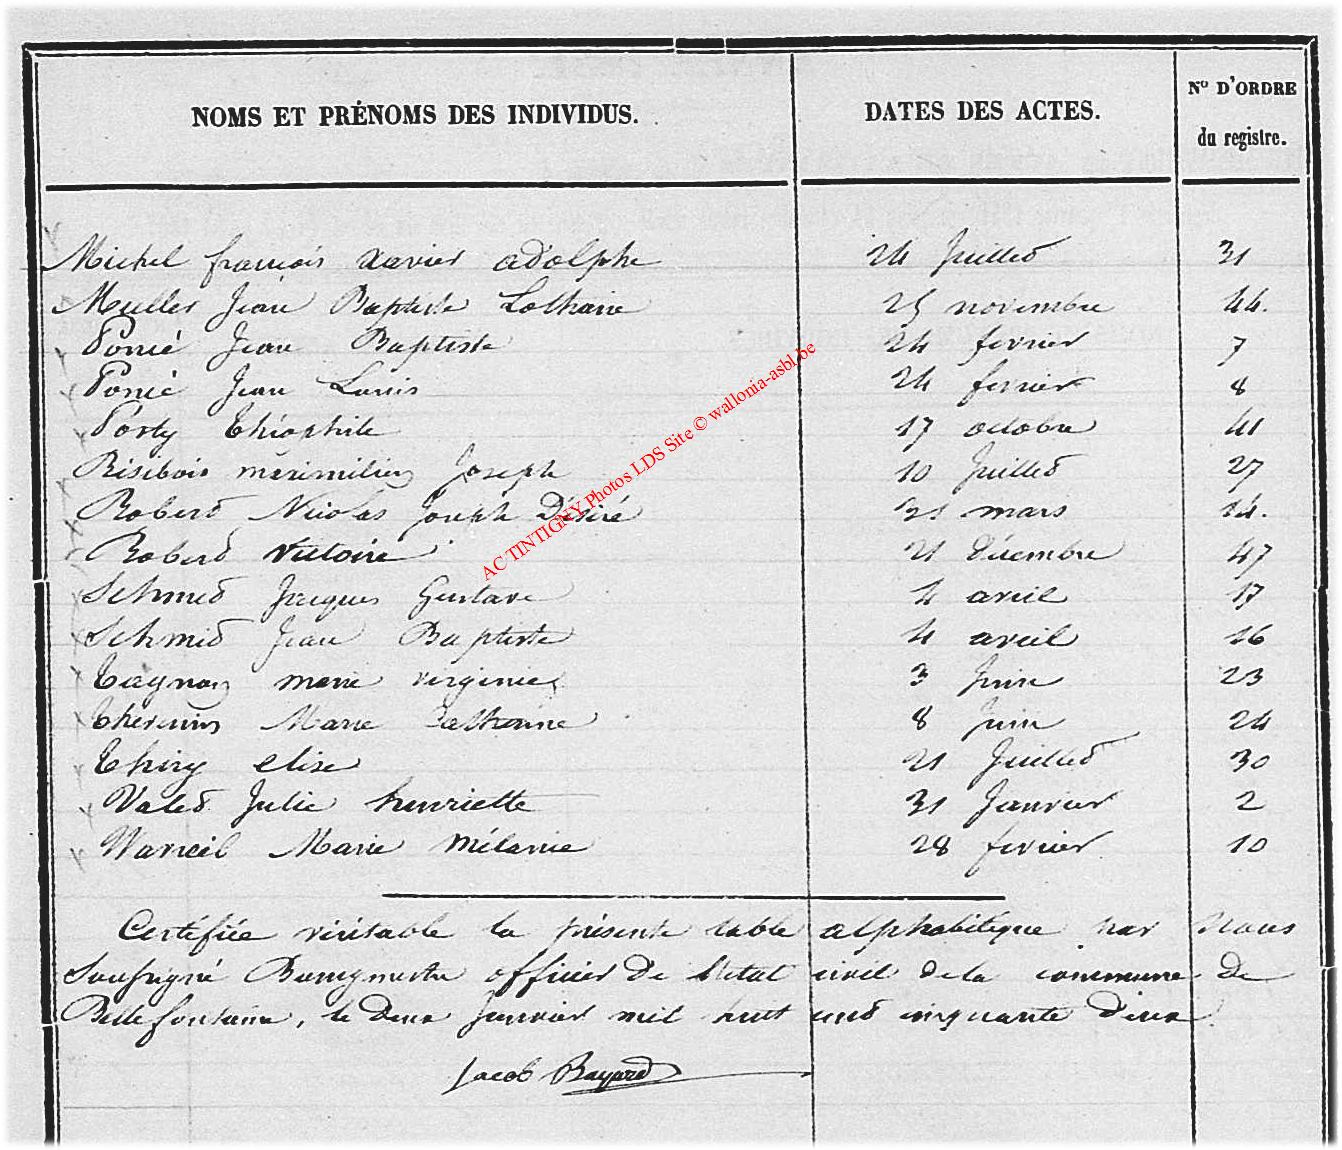 NOMS ET PRÉNOMS DES INDIVIDUS. DATES DES ACTES. Nº D'ORDRE du registre.
Michel françois xavier adolphe 24 Juillet 31
Muller Jean Baptiste Lothaire 25 novembre 44.
Poncé Jean Baptiste 24 fevrier 7
Poncé Jean Louis 24 fevrier 8
Posty théophile 17 octobre 41
Résibois méximilien Joseph 10 Juillet 27
Robert Nicolas Joseph Désiré 21 mars 14.
Robert Victoire 21 Décembre 47
Schmid Jacques Gustave 4 avril 17
Schmid Jean Baptiste 4 avril 16
tagnon marie virginie 3 Juin 23
Marie Catherine 8 Juin 24
thiry elise 21 Juillet 30
Valet Julie henriette 31 Janvier 2
Marie Mélanie 28 fevrier 10
Certifiée véritable la présente table alphabétique par Nous
Soussigné Bourgmestre officier De l'état civil de la commune De
Bellefontaine, le deux Janvier mil huit cent cinquante deux
Jacob Bayard
AC TINTIGNY Photos LDS Site © wallonia-asbl.be